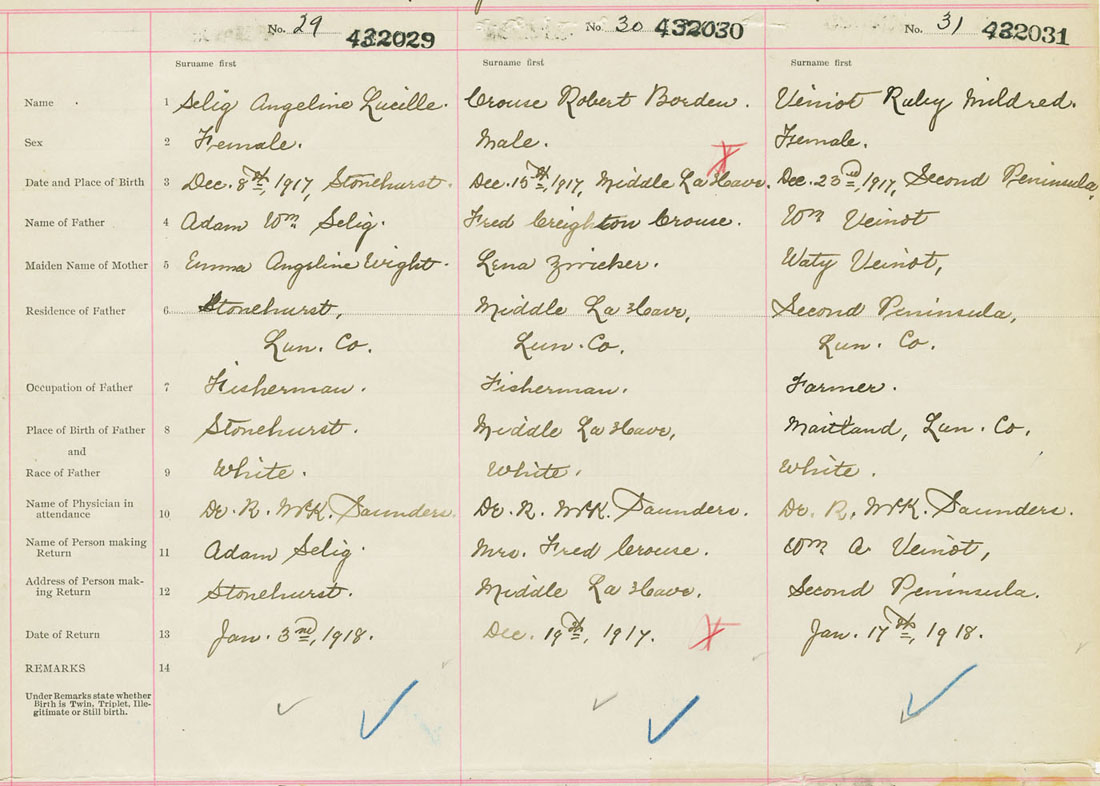 No. 29 432029 No. 30 432030 No. 31 432031
Surname first Surname first Surname first
Name 1 Selig Angeline Lucille. Crouse Robert Borden. Veiniot Ruby Mildred.
Sex 2 Female. Male. Female.
Date and Place of Birth 3 Dec. 8th, 1917, Stonehurst. Dec. 15th, 1917, Middle La Have. Dec. 23rd, 1917, Second Peninsula,
Name of Father 4 Adam Wm Selig. Fred Creighton Crouse. Wm Veinot
Maiden Name of Mother 5 Emma Angeline Wight. Lena Zwicker. Waty Veinot,
Residence of Father 6 Stonehurst, Middle La Have, Second Peninsula,
Lun. Co. Lun. Co. Lun. Co.
Occupation of Father 7 Fisherman. Fisherman. Farmer.
Place of Birth of Father 8 Stonehurst. Middle La Have, Maitland, Lun. Co.
and
Race of Father 9 White. White. White.
Name of Physician in
attendance 10 Dr. R. McK. Saunders. Dr. R. McK. Saunders. Dr. R. McK. Saunders.
Name of Person making
Return 11 Adam Selig. Mrs. Fred Crouse. Wm A. Veinot,
Address of Person mak-
ing Return 12 Stonehurst. Middle La Have. Second Peninsula.
Date of Return 13 Jan. 3rd, 1918. Dec. 19th, 1917. Jan. 17th, 1918.
REMARKS 14
Under Remarks state whether
Birth is Twin, Triplet, Ille-
gitimate or Still birth.